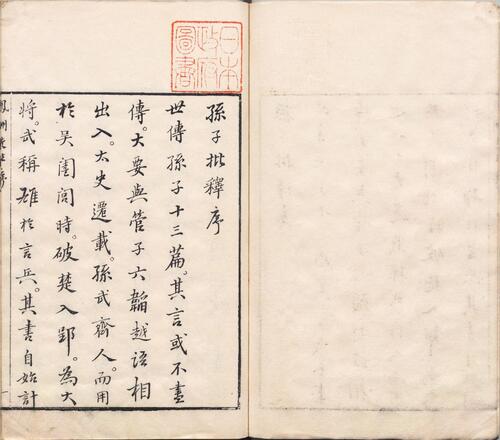 日本
政府
圖書
孫子批釋序
世傳孫子十三篇。其言或不盡
傳。大要與管子六韜越語相
出入。太史遷載。孫武齋人。而用
於吳闔閭時。破楚入郢。為大
將。武稱雄於言兵。其書自始計